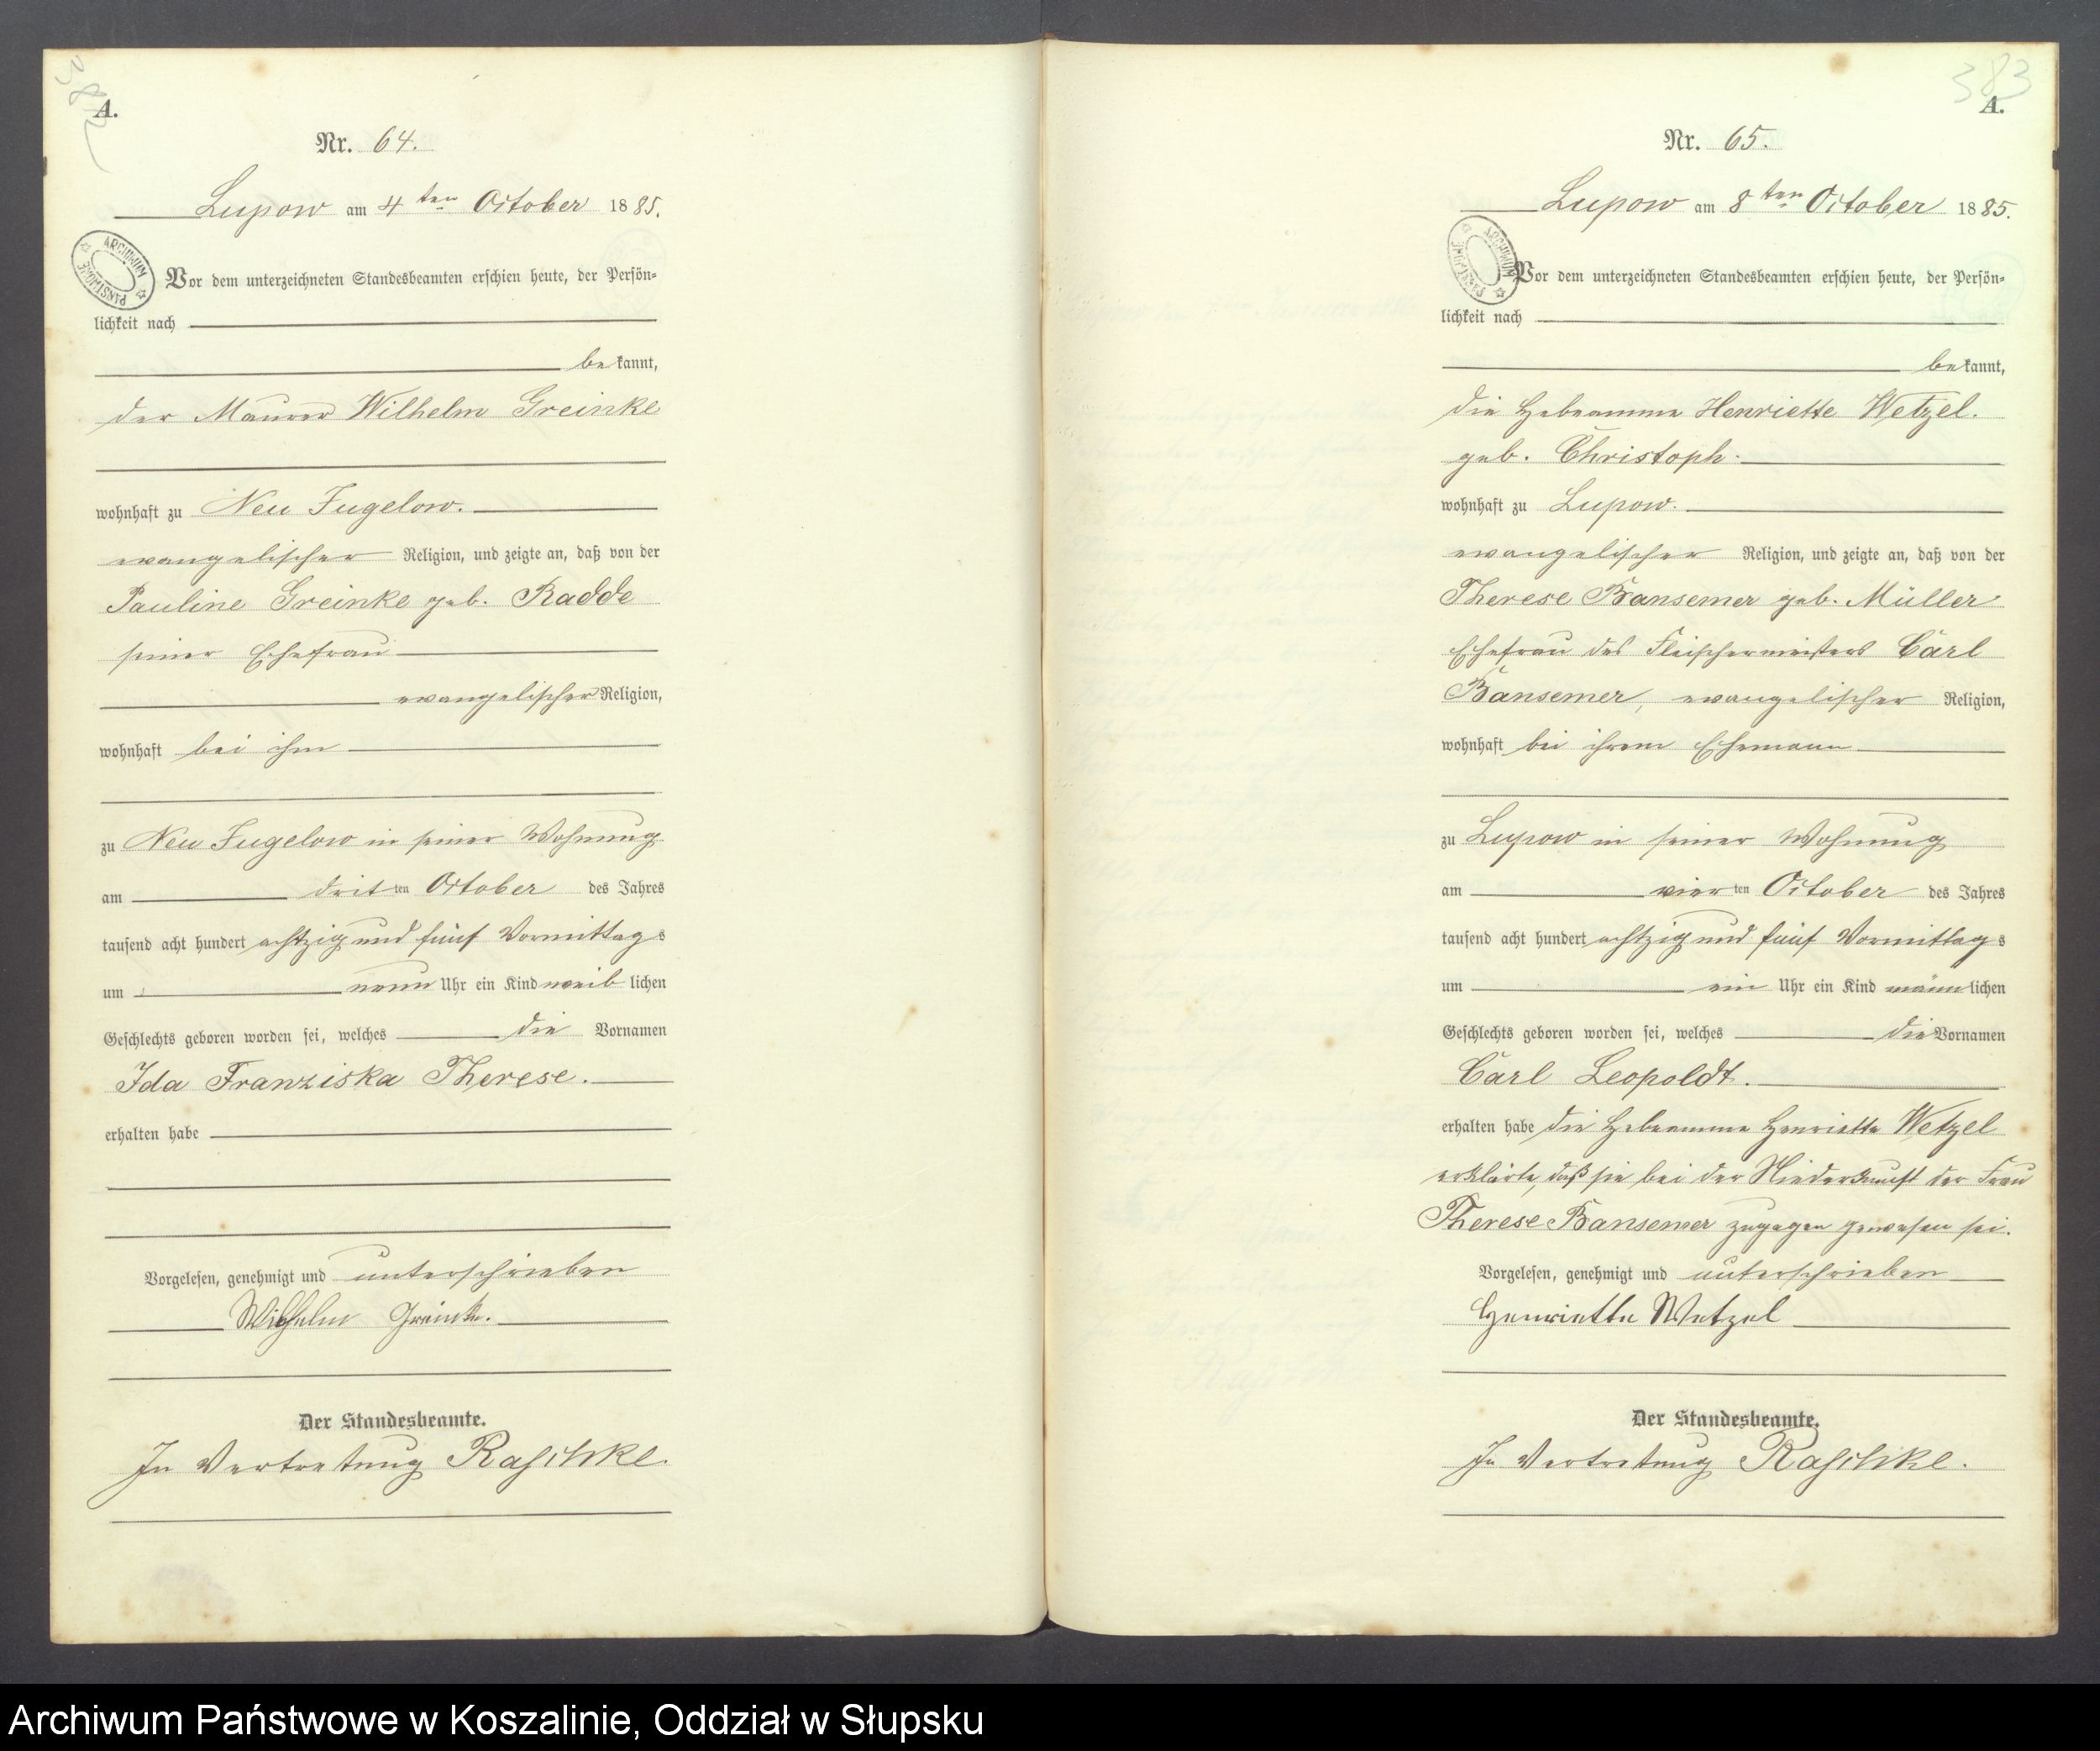 382
A.
Nr. 64.
Lupow am 4 ten October 1885.
ARCHIWUM PAŃSTWOWE
Vor dem unterzeichneten Standesbeamten erschien heute, der Persön-
lichkeit nach
bekannt,
der Maurer Wilhelm Greinke
wohnhaft zu Neu Jugelow.
evangelischer Religion, und zeigte an, daß von der
Pauline Greinke geb. Radde
seiner Ehefrau
evangelischer Religion,
wohnhaft bei ihm
zu Neu Jugelow in seiner Wohnung
am dritten October des Jahres
tausend acht hundert achtzig und fünf Vormittags
um neun Uhr ein Kind weiblichen
Geschlechts geboren worden sei, welches die Vornamen
Ida Franziska Therese.
erhalten habe
Vorgelesen, genehmigt und unterschrieben
Wilhelm Greinke.
Der Standesbeamte.
In Vertretung Raschke.
383
A.
Nr. 65.
Lupow am 8 ten October 1885.
ARCHIWUM PAŃSTWOWE
Vor dem unterzeichneten Standesbeamten erschien heute, der Persön-
lichkeit nach
bekannt,
die Hebeamme Henriette Wetzel.
geb. Christoph.
wohnhaft zu Lupow.
evangelischer Religion, und zeigte an, daß von der
Therese Bansemer geb. Müller
Ehefrau des Fleischermeisters Carl
Bansemer, evangelischer Religion,
wohnhaft bei ihrem Ehemann
zu Lupow in seiner Wohnung
am vierten October des Jahres
tausend acht hundert achtzig und fünf Vormittags
um ein Uhr ein Kind männlichen
Geschlechts geboren worden sei, welches die Vornamen
Carl Leopoldt.
erhalten habe die Hebeamme Henriette Wetzel
erklärte, daß sie bei der Niederkunft der Frau
Therese Bansemer zugegen gewesen sei.
Vorgelesen, genehmigt und unterschrieben
Henriette Wetzel
Der Standesbeamte.
In Vertretung Raschke.
Archiwum Państwowe w Koszalinie, Oddział w Słupsku